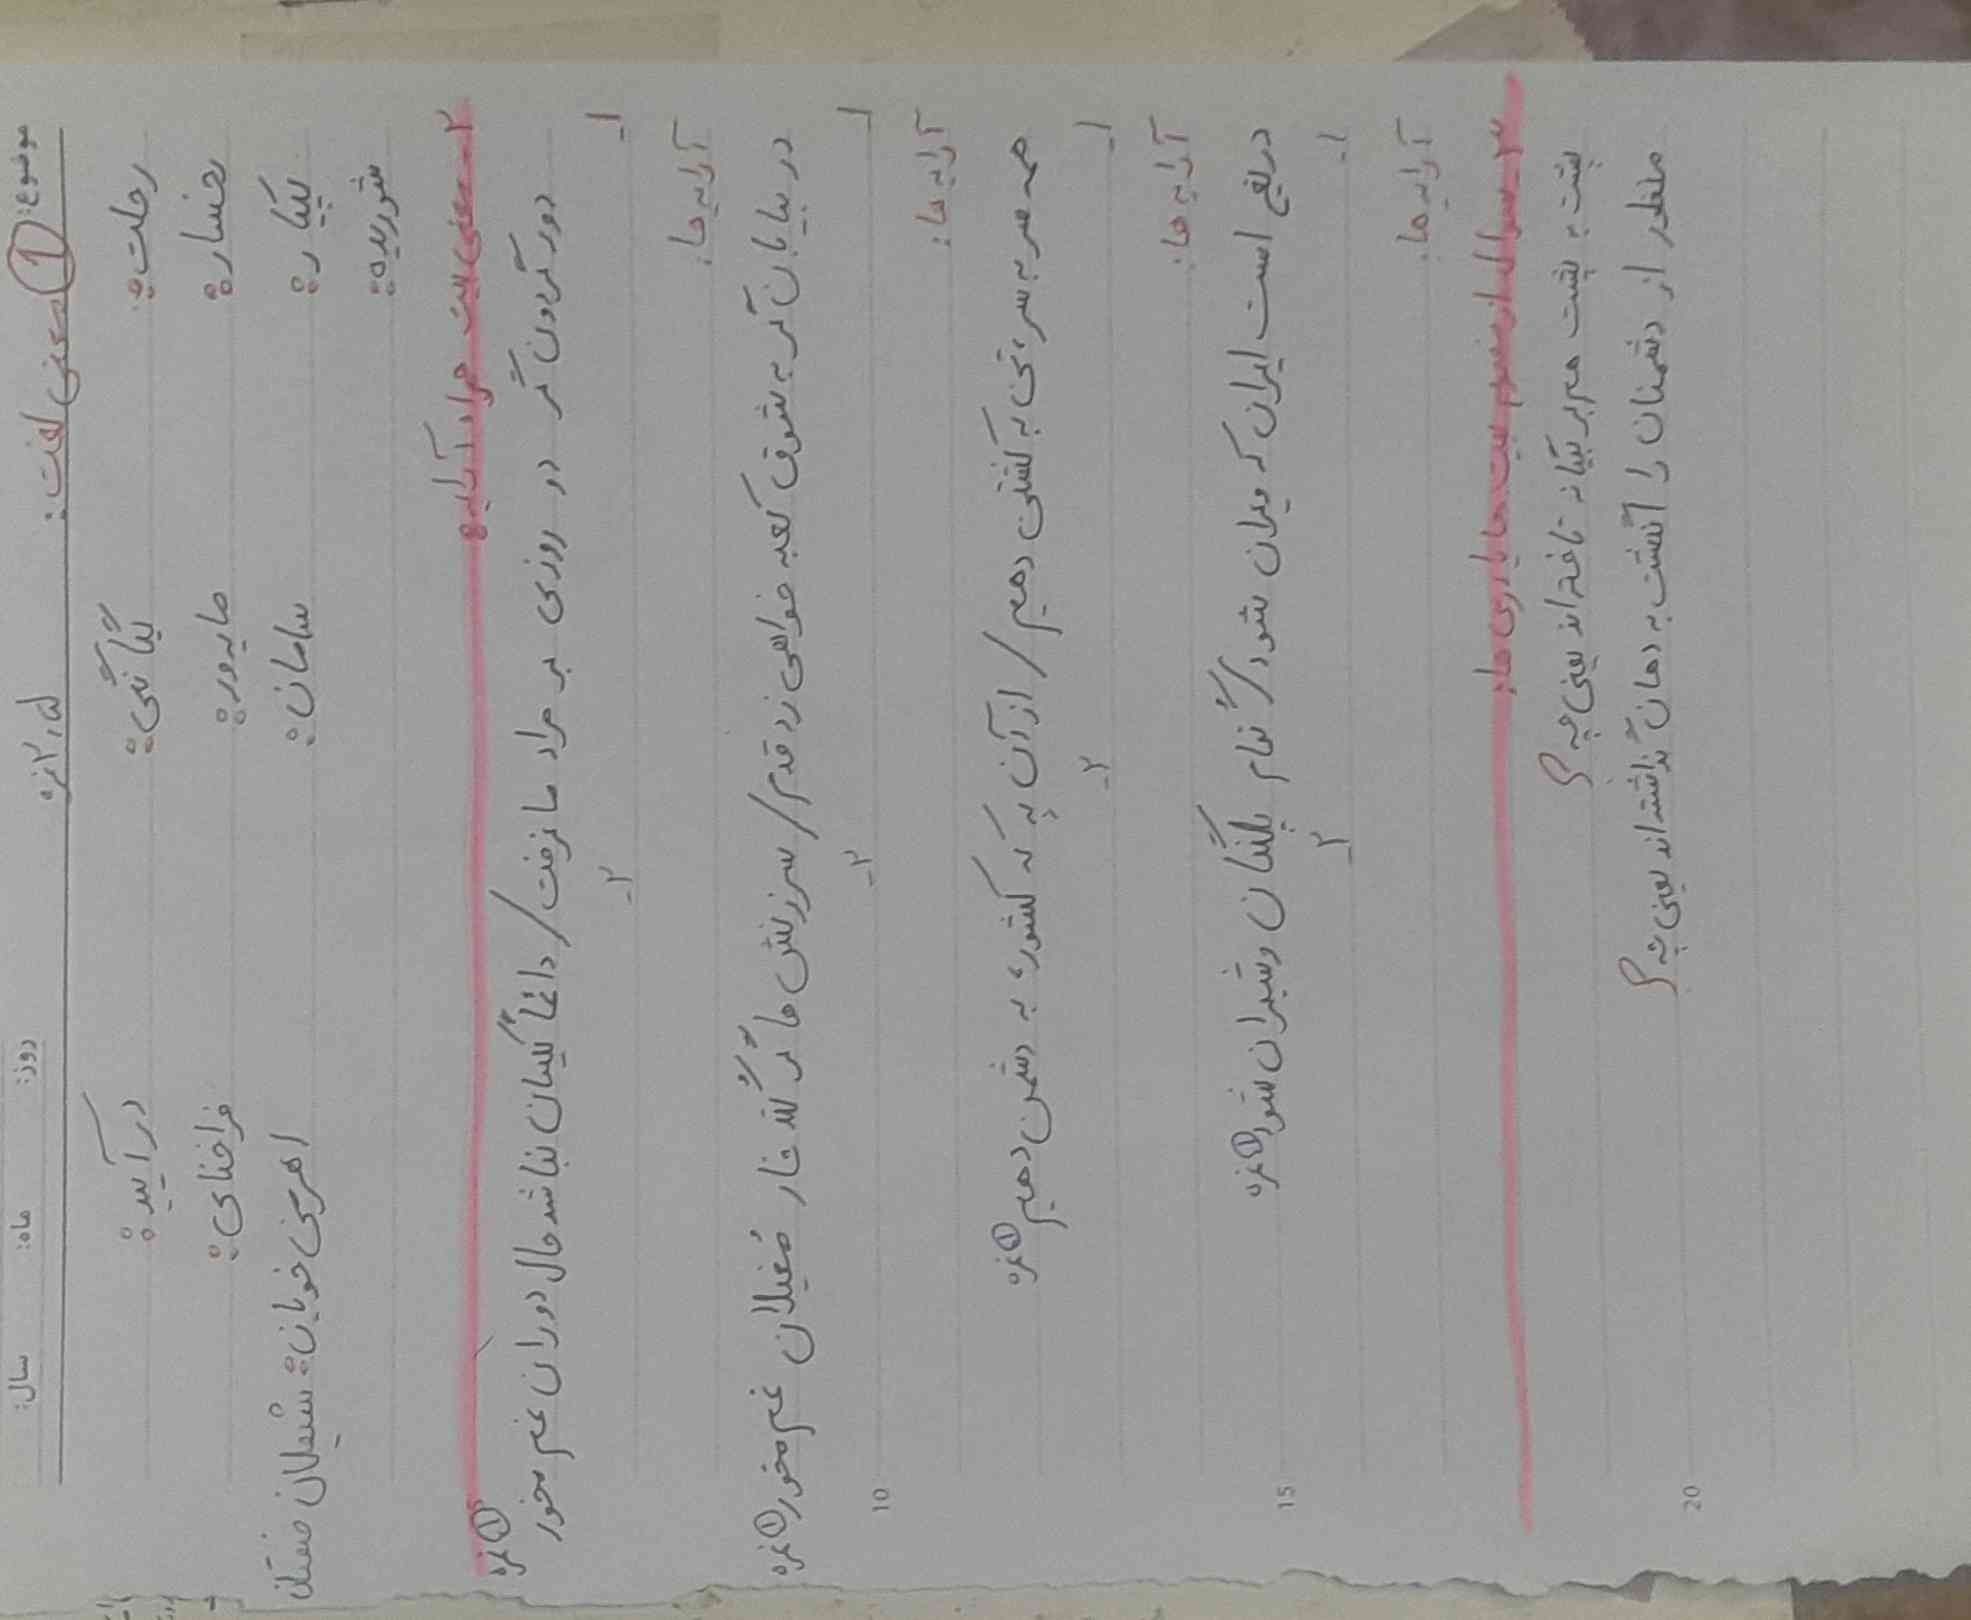 موضوع: سال: ماه: روز:
① معنی لغت: ۲،۵ نمره
رحلت: یگانگی: درآیید:
رخساره: مایه‌ور: فراخنای:
یکپاره: سامان: اهرمنی خویان: شیطان صفتان
شوریده:
۲- معنی بیت همراه آرایه: ① نمره
دور گردون گر دو روزی بر مراد ما نرفت / دائماً یکسان نباشد حال دوران غم مخور
۱- ۲-
آرایه ها:
در بیابان گر به شوق کعبه خواهی زد قدم / سرزنش ها گر کند خار مغیلان غم مخور ① نمره
۱- ۲-
آرایه ها:
همه سر به سر تن به کشتن دهیم / از آن به که کشور به دشمن دهیم ① نمره
۱- ۲-
آرایه ها:
دریغ است ایران که ویران شود / کنام پلنگان و شیران شود ① نمره
۱- ۲-
آرایه ها:
۳- سوال از مفهوم بیت ها یا
پشت به پشت هم بر بیگانه تاخته اند یعنی چه؟
منظور از دشمنان را انگشت به دهان گذاشته اند یعنی چه؟
10
15
20